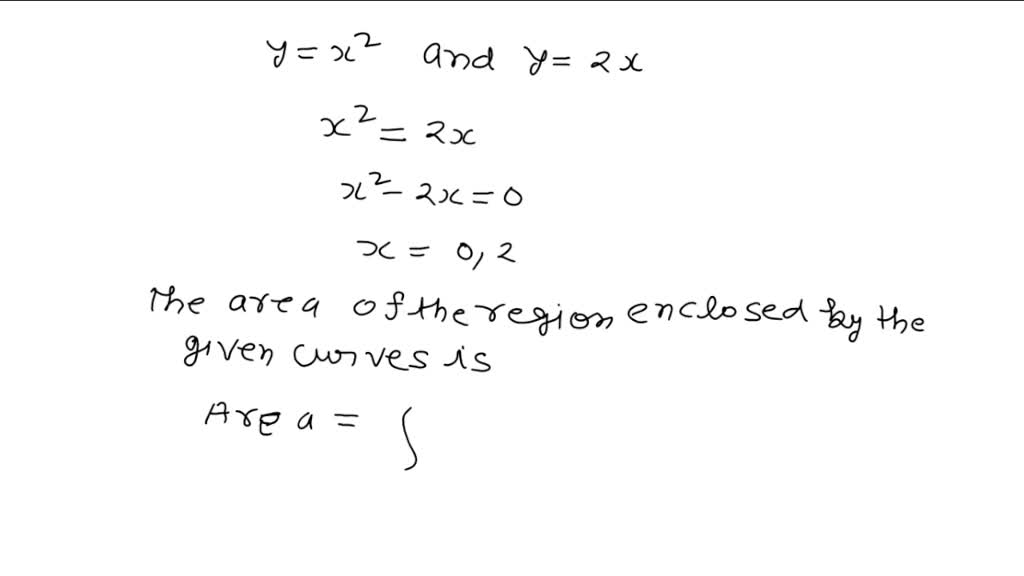 y = x² and y = 2x
x² = 2x
x² - 2x = 0
x = 0, 2
The area of the region enclosed by the
given curves is
Area = ∫